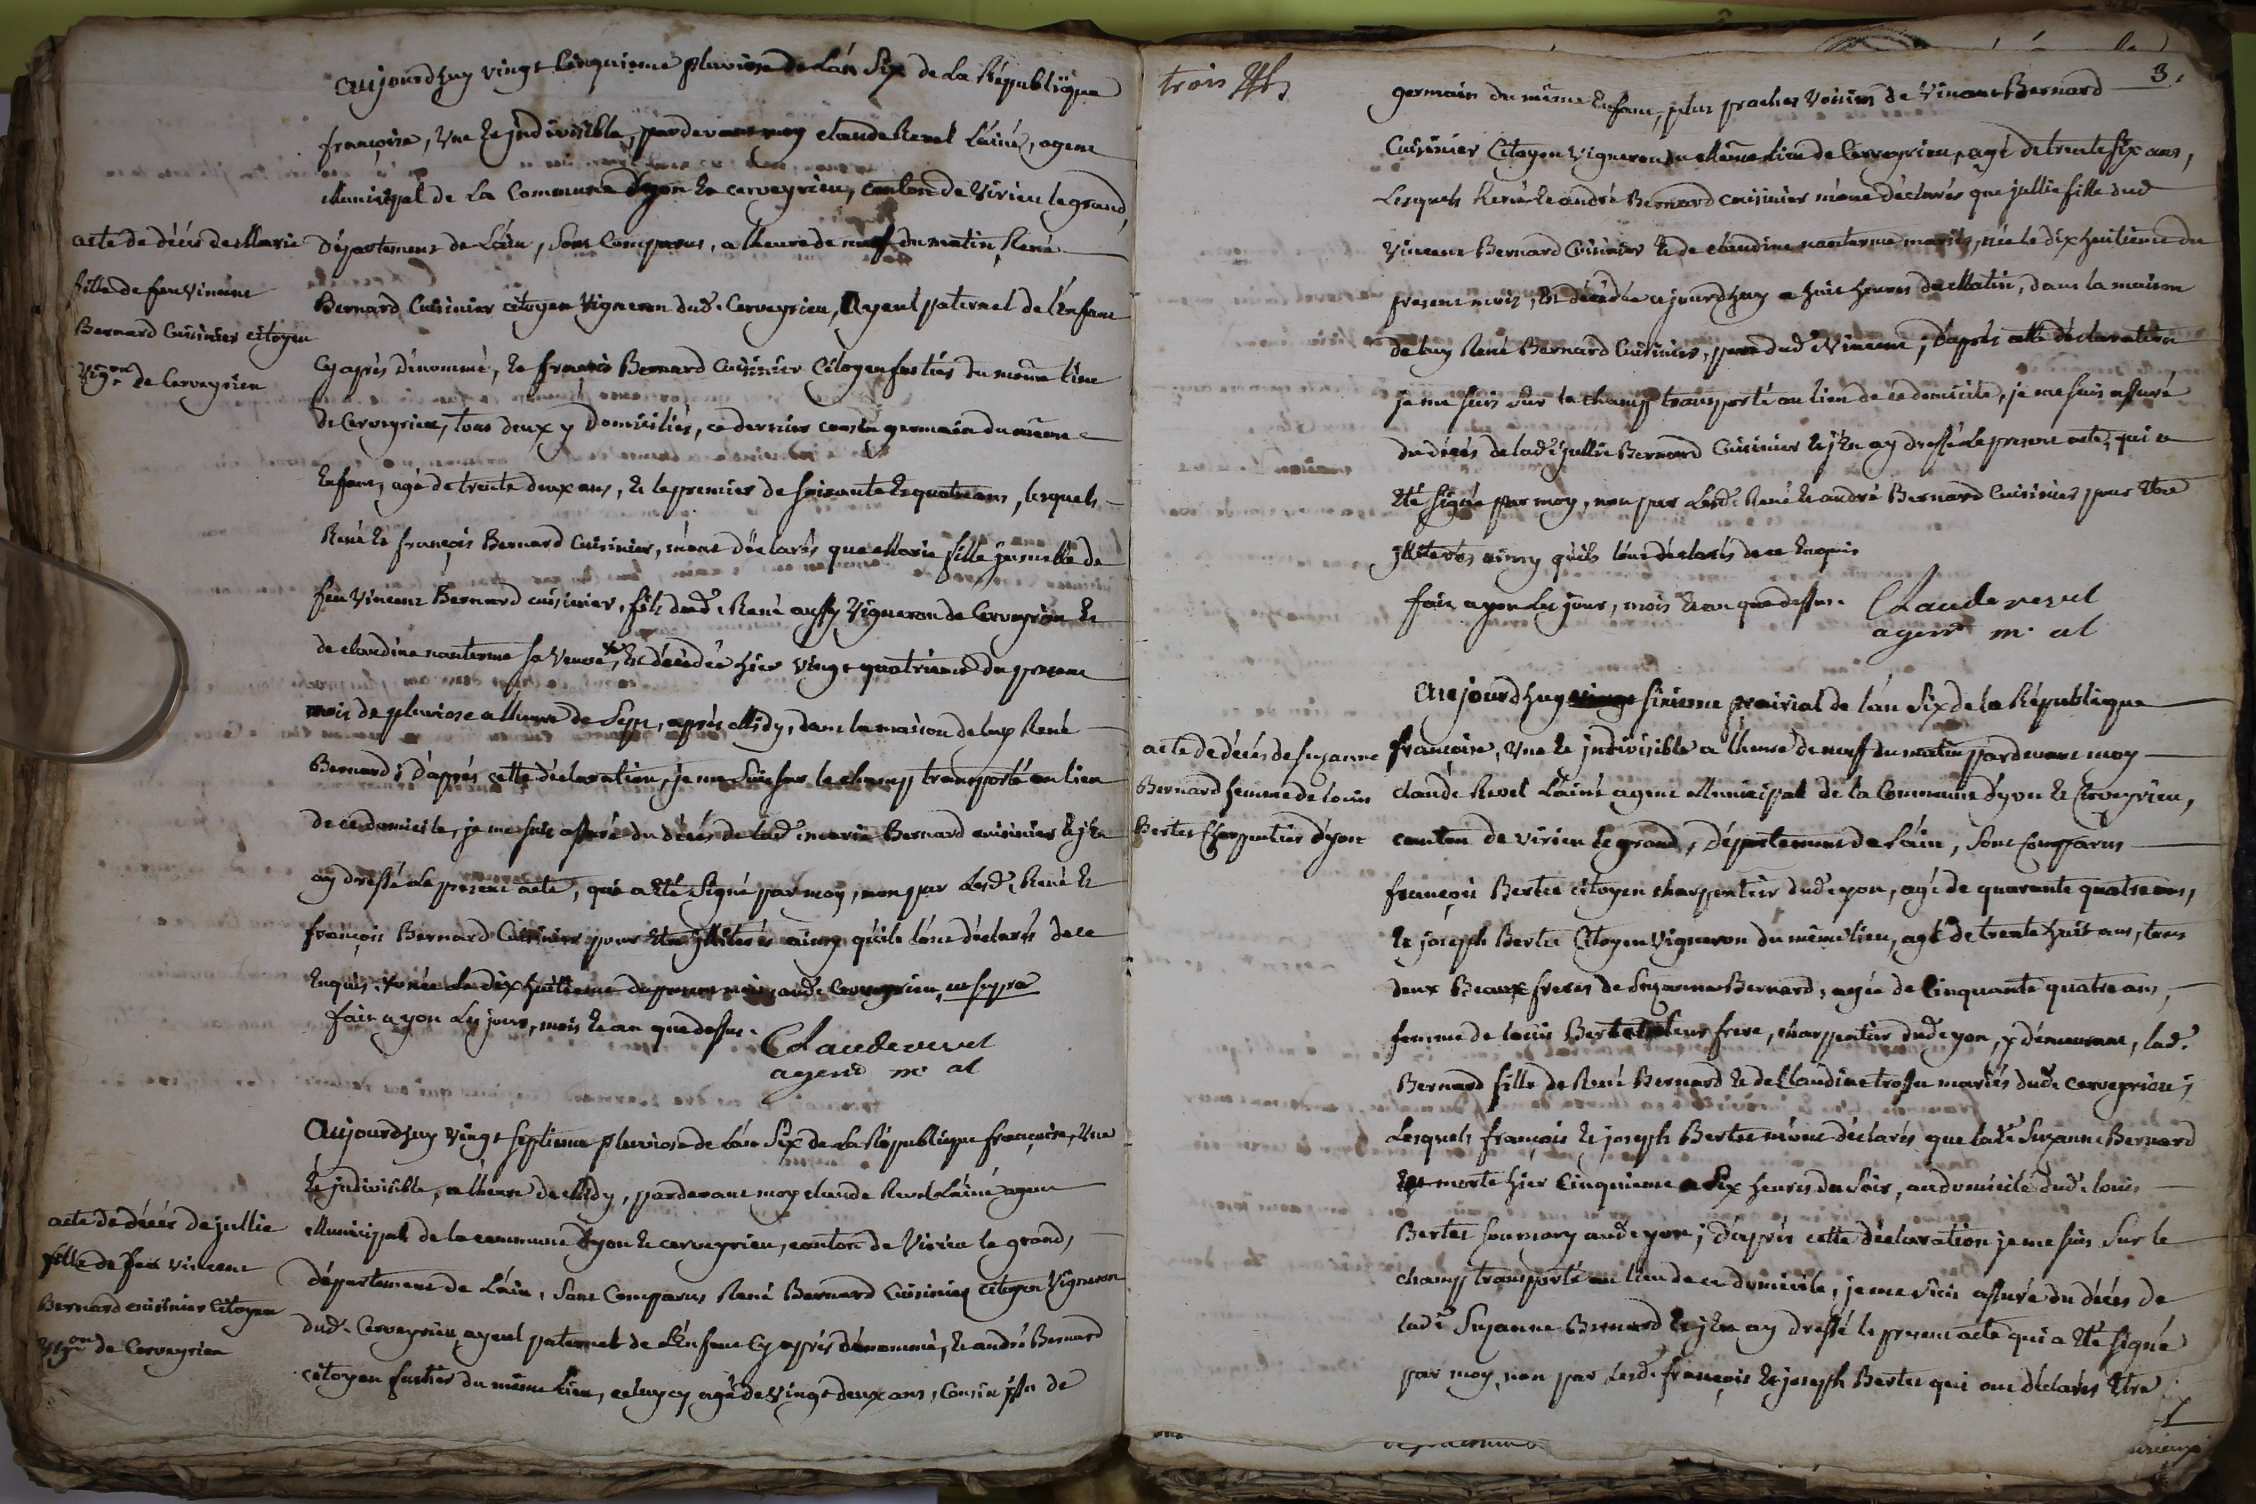 aujourdhuy vingt Cinquieme pluviose de Lán Six de La République
françoise, Une et jndivisible, pardevant moy claude Revel Láiné, agent
Municipal de La Commune dyon et cerveyrieu, canton de Virieu le grand,
acte de décés de Marie
fille de feu Vincent
Bernard Cuisinier citoyen
Vign.on de Cerveyrieu
Département de Láin, Sont Comparus, a lheure de neuf du matin, René
Bernard Cuisinier citoyen Vigneron dud. Cerveyrieu, Ayeul paternel de l'Enfant
Cy après dénommé, et françois Bernard Cuisinier Citoyen fustier du même lieu
de Cerveyrieu, tous deux y Domiciliés, ce dernier cousin germain du même
Enfant, agé de trente deux ans, et le premier de soixante et quatre ans, lesquels
René et françois Bernard Cuisinier, m'ont déclarés que Marie fille jumelle de
feu Vincent Bernard cuisinier, fils dud. René aussy Vigneron de Cerveyrieu et
de claudine nanterme sa Veuve, Est décédée hier vingt quatrieme du present
mois de pluviose a lheure de Sept, après Midy, dans la maison de luy René
Bernard; d'après cette déclaration, je me Suis sur le champ transporté au lieu
de ce domicile, je me suis assuré du décés de lad. marie Bernard cuisinier et j'En
ay dressé le present acte, qui a Eté Signé par moy, non par Lesd. René et
françois Bernard Cuisinier pour Etre jllitérés ainsy qúils lónt déclarés de ce
Enquis. x née le dix huitieme du present mois aud. Cerveyrieu, ut supra
fait a yon Les jour, mois et an que dessus.
Claude revel
agent m. al
Aujourdhuy Vingt Septieme pluviose de lán Six de La République françoise, Une
Et jndivisible, a lheure de Midy, pardevant moy claude Revel Láiné agent
acte de décés de jullie
fille de feu Vincent
Bernard cuisinier Citoyen
Vign.on de Cerveyrieu
Municipal de la commune dyon et cerveyrieu, canton de Virieu le grand,
département de Láin, Sont Comparus René Bernard Cuisinier citoyen Vigneron
dud. Cerveyrieu, ayeul paternel de l'Enfant Cy après dénommé, et andré Bernard
citoyen fustier du même lieu, celuy cy agé de Vingt deux ans, Cousin jssu de
trois
3.
germain du même Enfant, plus proches Voisins de Vincent Bernard
Cuisinier Citoyen Vigneron du Même lieu de Cerveyrieu, agé de trente six ans,
Lesquels René et andré Bernard cuisinier m'ont déclarés que jullie fille dud
Vincent Bernard Cuisinier et de claudine nanterme mariés, née le dix huitieme du
present mois, Est décédée ajourdhuy a huit heures du Matin, dans la maison
de luy René Bernard Cuisinier, pere dud. Vincent; d'après cette déclaration
je me suis sur le champ transporté au lieu de ce domicile, je me suis assuré
du décés de lad. jullie Bernard Cuisinier et j'En ay dressé le present acte, qui a
Eté signé par moy, non par Lesd. René et andré Bernard Cuisinier pour Etre
jllitérés ainsy qúils lónt déclarés de ce Enquis
fait a yon Les jour, mois et an que dessus.
Claude revel
agent m. al
Aujourdhuy sixieme prairial de lán Six de la République
acte de décés de Suzanne
Bernard femme de louis
Bertet Charpentier dyon
françoise, Une et jndivisible a lheure de neuf du matin pardevant moy
claude Revel Láiné agent Municipal de la Commune dyon et Cerveyrieu,
canton de virieu le grand, Département de Láin, Sont Comparus
françois Bertet citoyen charpentier dud. yon, agé de quarante quatre ans,
et joseph Bertet Citoyen Vigneron du même lieu, agé de trente huit ans, tous
deux Beaux freres de Suzanne Bernard, agée de Cinquante quatre ans,
femme de louis Bertet leur frere, charpentier dud. yon, y demeurant, lad.
Bernard fille de René Bernard et de Claudine trossu mariés dud. cerveyrieu;
Lesquels françois et joseph Bertet m'ont déclarés que lad. Suzanne Bernard
Est morte hier Cinquieme a Six heures du Soir, au domicile dud. louis
Bertet son mary aud. yon; d'après cette déclaration je me suis Sur le
champ transporté au lieu de ce domicile, je me Suis assuré du décés de
lad. Suzanne Bernard et j'En ay dressé le present acte qui a Eté signé
par moy, non par Lesd. françois et joseph Bertet qui ont déclarés Etre